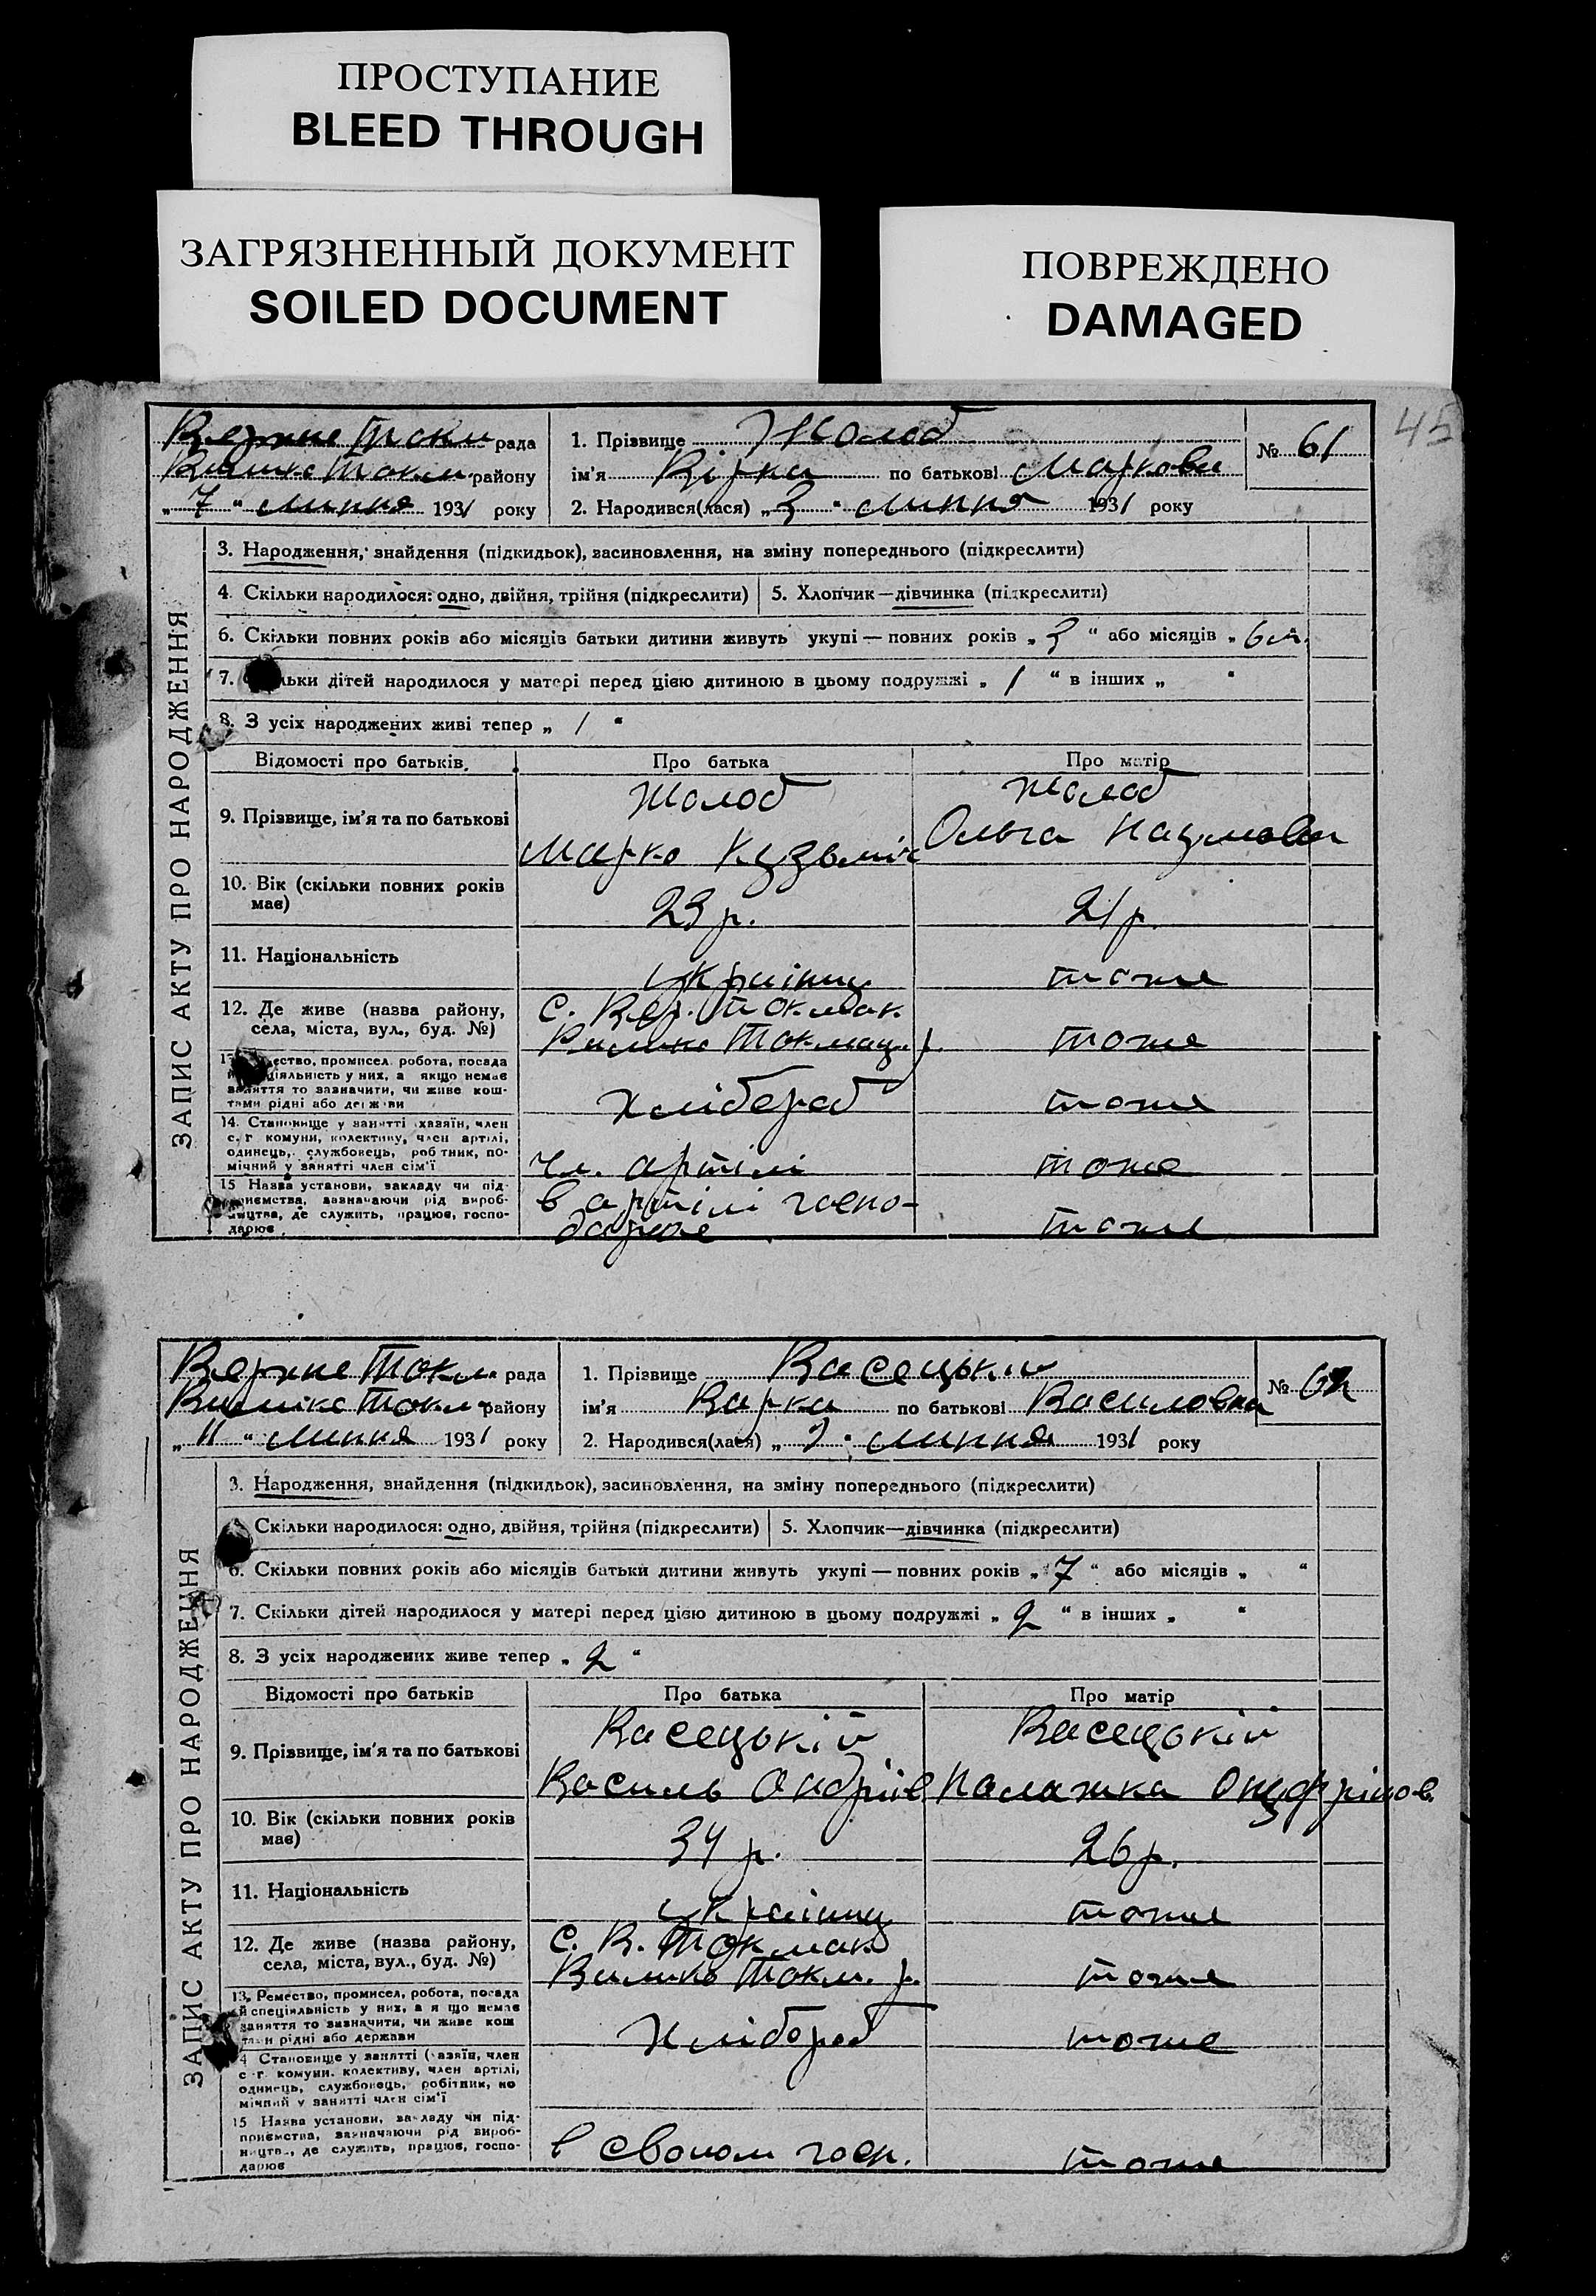 ПРОСТУПАНИЕ
BLEED THROUGH
ЗАГРЯЗНЕННЫЙ ДОКУМЕНТ
SOILED DOCUMENT
ПОВРЕЖДЕНО
DAMAGED
45
Верхне Токм рада
Велико Токм. району
„ 7 “ липня 1931 року
1. Прізвище Жолоб
ім'я Вірка по батькові Маркови
2. Народився(лася) „ 3 “ липня 1931 року
№ 61
ЗАПИС АКТУ ПРО НАРОДЖЕННЯ
3. Народження, знайдення (підкидьок), засиновлення, на зміну попереднього (підкреслити)
4. Скільки народилося: одно, двійня, трійня (підкреслити) 5. Хлопчик—дівчинка (підкреслити)
6. Скільки повних років або місяців батьки дитини живуть укупі — повних років „ 3 “ або місяців „ 6 м.
7. дітей народилося у матері перед цією дитиною в цьому подружжі „ 1 “ в інших „ “
8. З усіх народжених живі тепер „ 1 “
Відомості про батьків Про батька Про матір
9. Прізвище, ім'я та по батькові Жолоб Жолоб
Марко Кузьміч Ольга Наумовн
10. Вік (скільки повних років має) 23 р. 21 р.
11. Національність українц тоже
12. Де живе (назва району, села, міста, вул., буд. №) с. Вер. Токмак
Велико Токмац. р. тоже
промисел. робота, посада
у них, а якщо немає
заняття то зазначити, чи живе кош-
тами рідні або держави Хлібороб тоже
14. Становище у занятті хазяїн, член
с.-г комуни, колективу, член артілі,
одинець, службовець, робітник, по-
мічний у занятті член сім'ї чл. артілі тоже
15 Назва установи, закладу чи під-
приємства, зазначаючи рід вироб-
ництва, де служить, працює, госпо-
дарює в артілі госпо-
дарює тоже
Верхне Токм. рада
Велико Токм. району
„ 11 “ липня 1931 року
1. Прізвище Васецький
ім'я Варка по батькові Василовна
2. Народився(лася) „ “ липня 1931 року
№ 62
ЗАПИС АКТУ ПРО НАРОДЖЕННЯ
3. Народження, знайдення (підкидьок), засиновлення, на зміну попереднього (підкреслити)
Скільки народилося: одно, двійня, трійня (підкреслити) 5. Хлопчик—дівчинка (підкреслити)
6. Скільки повних років або місяців батьки дитини живуть укупі — повних років „ 7 “ або місяців „ “
7. Скільки дітей народилося у матері перед цією дитиною в цьому подружжі „ 2 “ в інших „ “
8. З усіх народжених живе тепер „ 2 “
Відомості про батьків Про батька Про матір
9. Прізвище, ім'я та по батькові Васецькій Васецькій
Василь Андріїв Палажка Онуфріюов.
10. Вік (скільки повних років має) 34 р. 26 р.
11. Національність українц тоже
12. Де живе (назва району, села, міста, вул., буд. №) С. В. Токмак
Велико Токм. р. тоже
13. Ремество, промисел, робота, посада
й спеціяльність у них, а я що немає
заняття то зазначити, чи живе кош
рідні або держави Хлібороб тоже
4 Становище у занятті (хазяїн, член
с.-г. комуни, колективу, член артілі,
одинець, службовець, робітник, по
мічний у занятті член сім'ї
15 Назва установи, закладу чи під-
приємства, зазначаючи рід вироб-
ництва, де служить, працює, госпо-
дарює в своюом госп. тоже